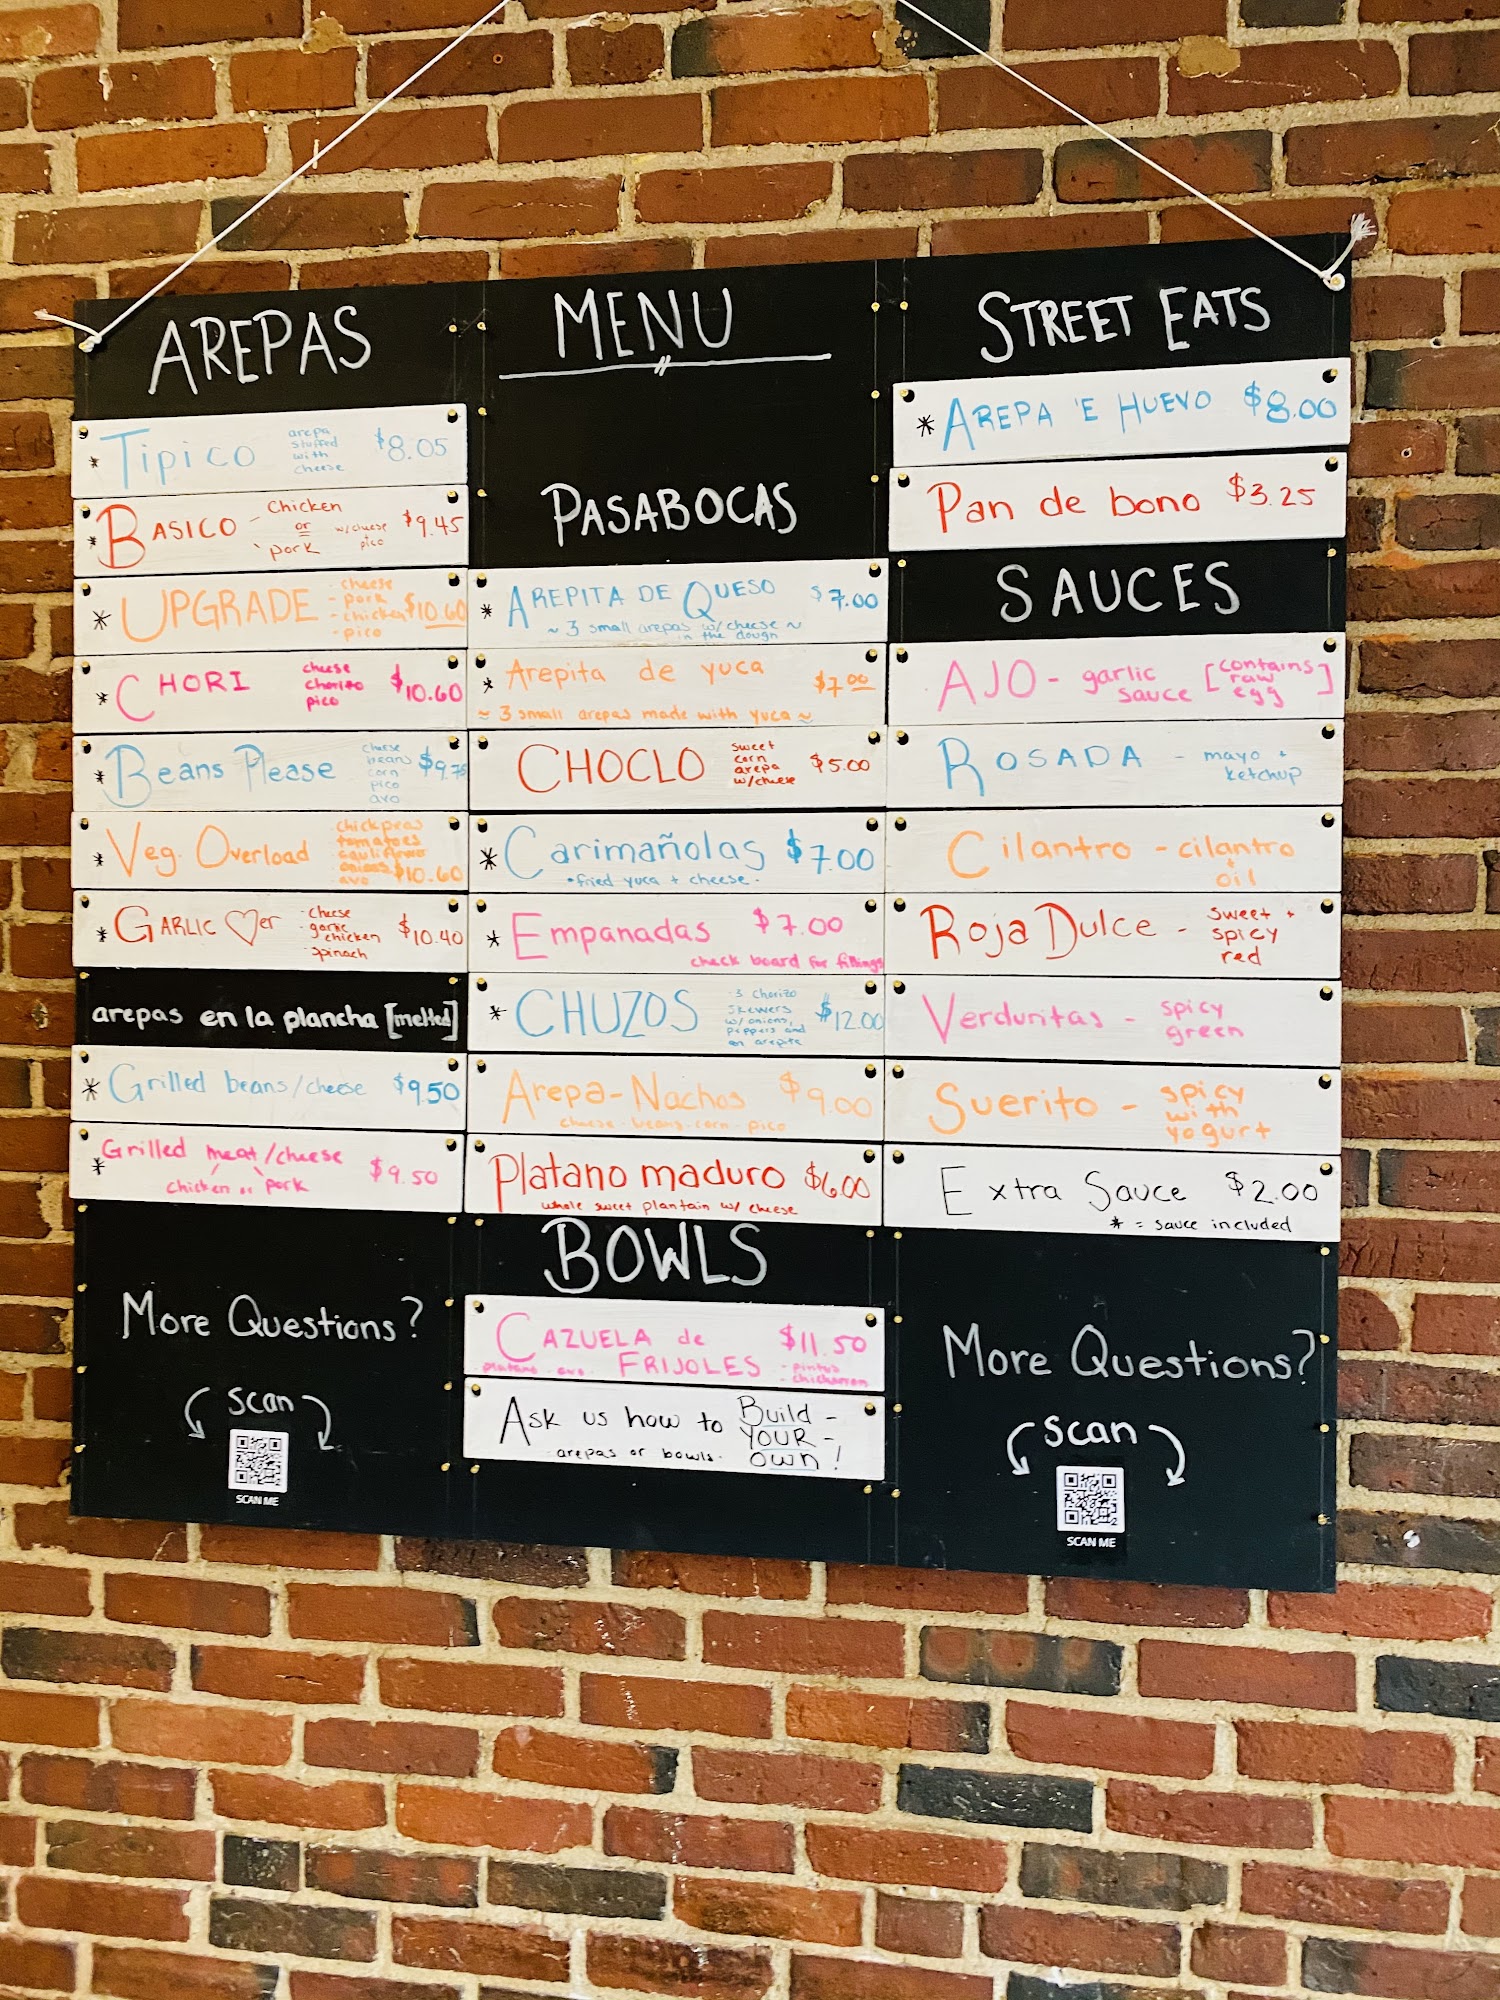 AREPAS
* Tipico arepa stuffed with cheese $8.05
* BASICO - Chicken or pork w/cheese + pico $9.45
* UPGRADE - cheese - pork - chicken - pico $10.60
* CHORI cheese chorizo pico $10.60
* Beans Please cheese beans corn pico avo $9.75
* Veg. Overload chickpeas tomatoes cauliflower onions avo $10.60
* GARLIC ♡er - Cheese - garlic chicken - spinach $10.40
arepas en la plancha [melted]
* Grilled beans/cheese $9.50
* Grilled meat/cheese chicken or pork $9.50
More Questions?
scan
SCAN ME
MENU
PASABOCAS
* AREPITA DE QUESO $7.00
~ 3 small arepas w/cheese ~
in the dough
* Arepita de yuca $7.00
≈ 3 small arepas made with yuca ≈
CHOCLO sweet corn arepa w/cheese $5.00
* Carimañolas $7.00
• fried yuca + cheese •
* Empanadas $7.00
check board for fillings
* CHUZOS 3 Chorizo skewers w/onions, peppers and an arepita $12.00
Arepa-Nachos $9.00
cheese - beans - corn - pico
Platano maduro $6.00
whole sweet plantain w/ cheese
BOWLS
CAZUELA de FRIJOLES $11.50
platano - avo - pintos - chicharron
Ask us how to Build - YOUR - Own!
- arepas or bowls -
STREET EATS
* AREPA 'E HUEVO $8.00
Pan de bono $3.25
SAUCES
AJO - garlic sauce [contains raw egg]
ROSADA - mayo + ketchup
Cilantro - cilantro + oil
Roja Dulce - sweet + spicy red
Verduritas - spicy green
Suerito - spicy with yogurt
Extra Sauce $2.00
* = sauce included
More Questions?
scan
SCAN ME